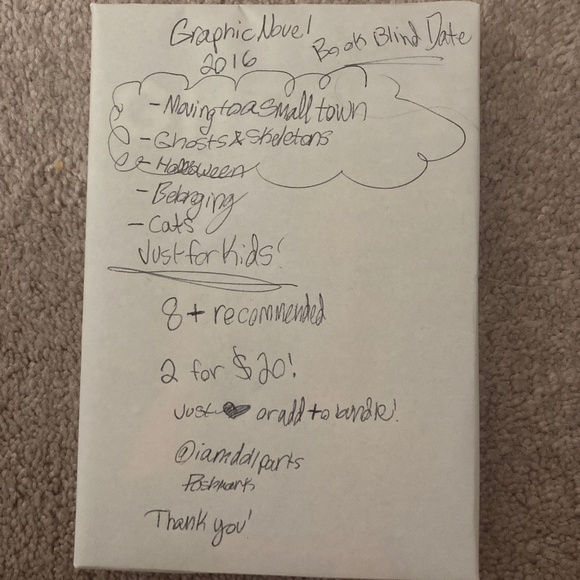 Graphic Novel
2016
Book Blind Date
- Moving to a small town
- Ghosts & Skeletons
- Halloween
- Belonging
- Cats
Just for Kids!
8+ recommended
2 for $20!
Just ♥ or add to bundle!
Poshmark
Thank you!